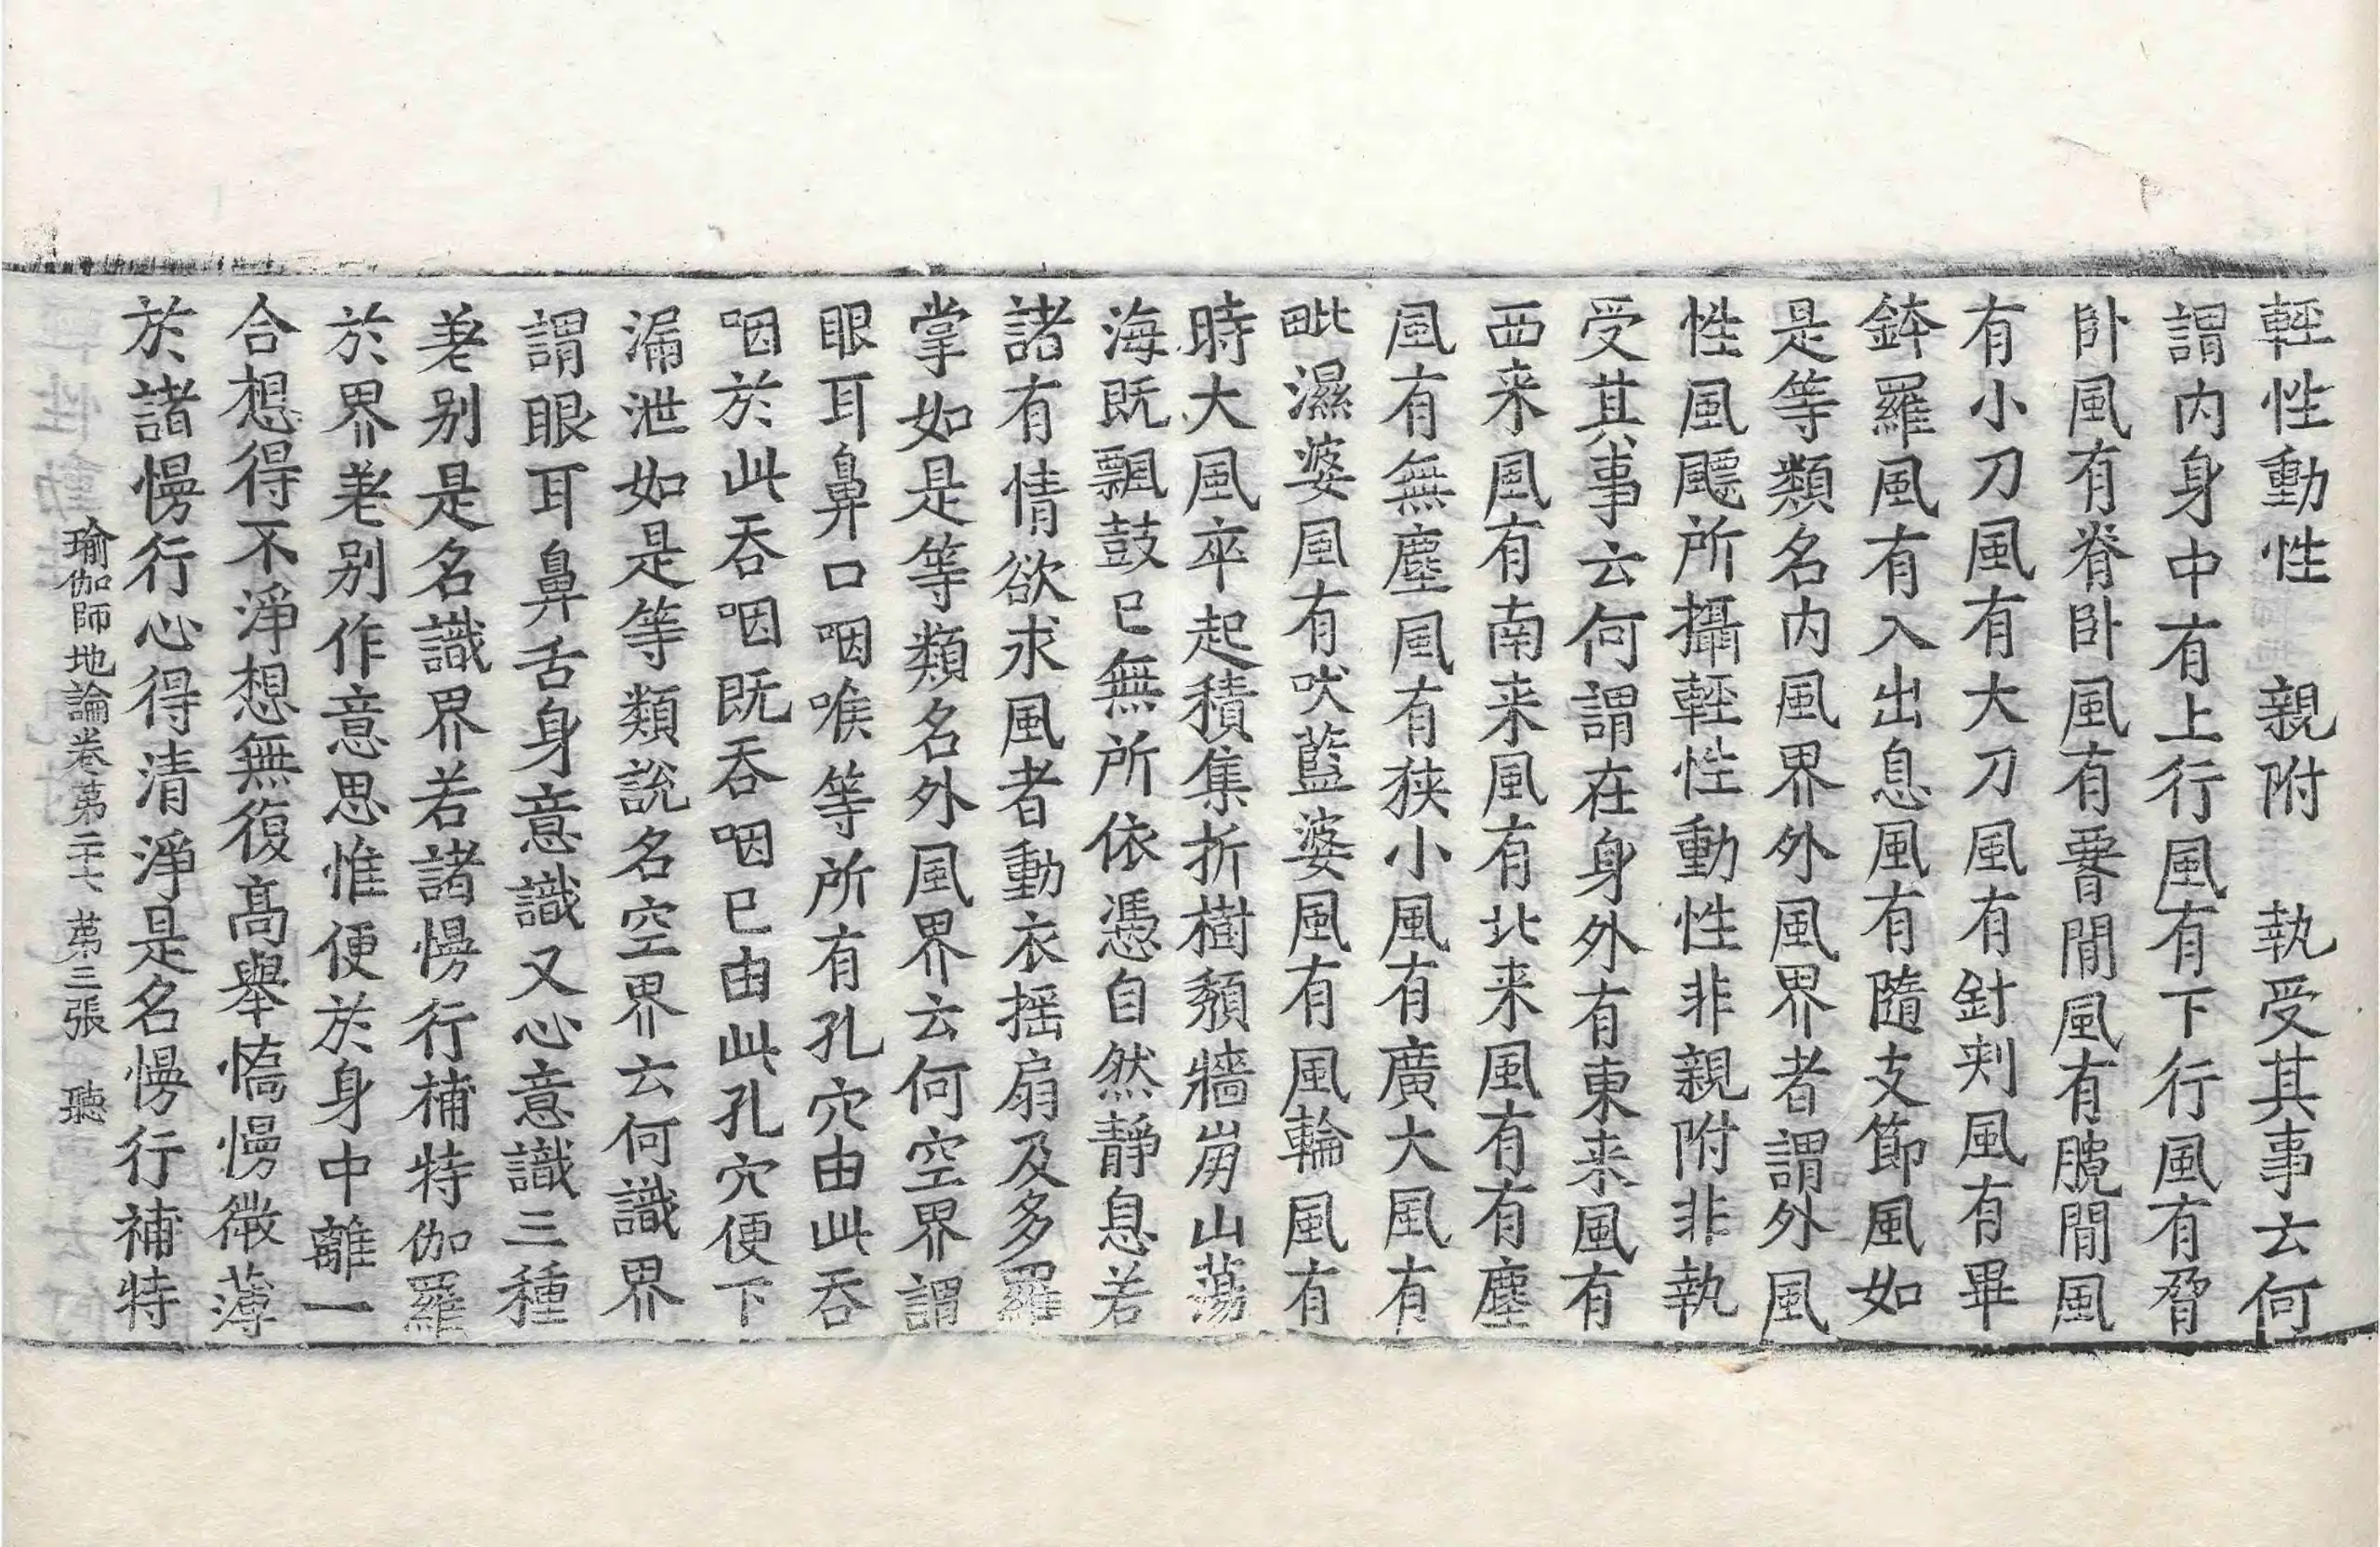 輕性動性 親附 執受其事云何
謂內身中有上行風有下行風有脅
卧風有脊卧風有䙅間風有臗間風
有小刀風有大刀風有針刾風有畢
鉢羅風有入出息風有隨支節風如
是等類名內風界外風界者謂外風
性風飃所攝輕性動性非親附非執
受其事云何謂在身外有東来風有
西来風有南来風有北来風有有塵
風有無塵風有狹小風有廣大風有
毗濕婆風有吠藍婆風有風輪風有
時大風卒起積集折樹頹牆崩山蕩
海既飄鼓已無所依憑自然靜息若
諸有情欲求風者動衣摇扇及多羅
掌如是等類名外風界云何空界謂
眼耳鼻口咽喉等所有孔穴由此吞
咽於此吞咽既吞咽已由此孔穴便下
漏泄如是等類說名空界云何識界
謂眼耳鼻舌身意識又心意識三種
差别是名識界若諸慢行補特伽羅
於界差别作意思惟便於身中離一
合想得不淨想無復髙舉憍慢微薄
於諸慢行心得清淨是名慢行補特
瑜伽師地論卷第二十七 第三張 聽